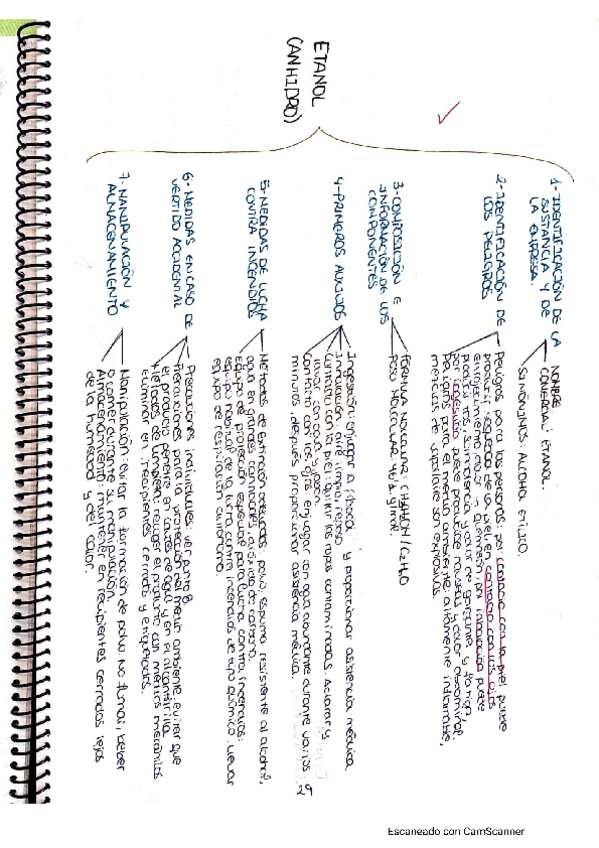 ETANOL
(ANHIDRO)
1- IDENTIFICACIÓN DE LA
SUSTANCIA Y DE
LA EMPRESA.
NOMBRE
COMERCIAL: ETANOL.
SINÓNIMOS: ALCOHOL ETÍLICO.
2- IDENTIFICACIÓN DE
LOS PELIGROS
Peligros para las personas: por contacto con la piel puede
producir sequedad de la piel, en contacto con los ojos
enrojecimiento, color y quemazón, por inhalación puede
producir tos, somnolencia y dolor de garganta y fatiga,
por ingestión puede producirse nauseas y dolor abdominal.
Peligros para el medio ambiente: altamente inflamable,
mezclas de vapor/aire son explosivas.
3- COMPOSICIÓN E
INFORMACIÓN DE LOS
COMPONENTES
FÓRMULA MOLECULAR: CH3CH2OH/C2H6O
PESO MOLECULAR 46'1 g/mol.
4- PRIMEROS AUXILIOS
Ingestión: enjuagar la boca y proporcionar asistencia médica.
Inhalación: aire limpio, reposo.
Contacto con la piel: quitar las ropas contaminadas. Aclarar y
lavar con agua y jabón.
Contacto con los ojos: enjuagar con agua abundante durante varios
minutos, después proporcionar asistencia médica.
5- MEDIDAS DE LUCHA
CONTRA INCENDIOS
Métodos de extinción adecuados: polvo, espuma resistente al alcohol,
agua en grandes cantidades, dióxido de carbono.
Equipo de protección especial para lucha contra incendios:
equipo habitual de la lucha contra incendios de tipo químico. Llevar
equipo de respiración autónomo.
6- MEDIDAS EN CASO DE
VERTIDO ACCIDENTAL
Precauciones individuales: ver punto 8.
Precauciones para la protección del medio ambiente: evitar que
el producto penetre en cauces de agua y en el alcantarilla.
Métodos de limpieza: recoger el producto con medios mecánicos
Eliminar en recipientes cerrados y etiquetados.
7- MANIPULACIÓN Y
ALMACENAMIENTO
Manipulación: evitar la formación de polvo. No fumar, beber
o comer durante su manipulación.
Almacenamiento: mantener en recipientes cerrados lejos
de la humedad y del calor.
29
Escaneado con CamScanner